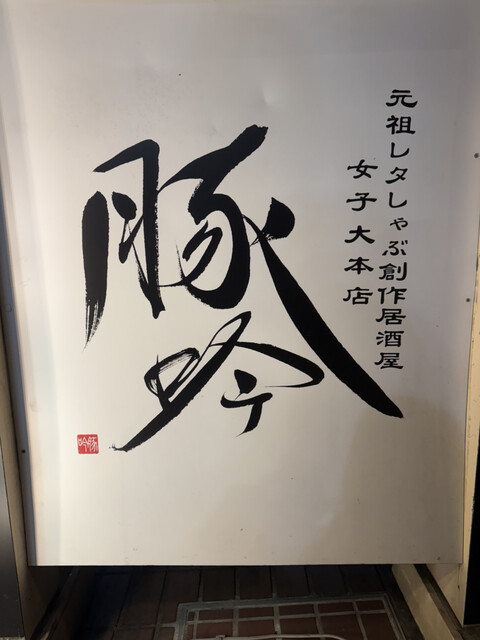 元祖レタしゃぶ創作居酒屋
女子大本店
豚吟
豚吟